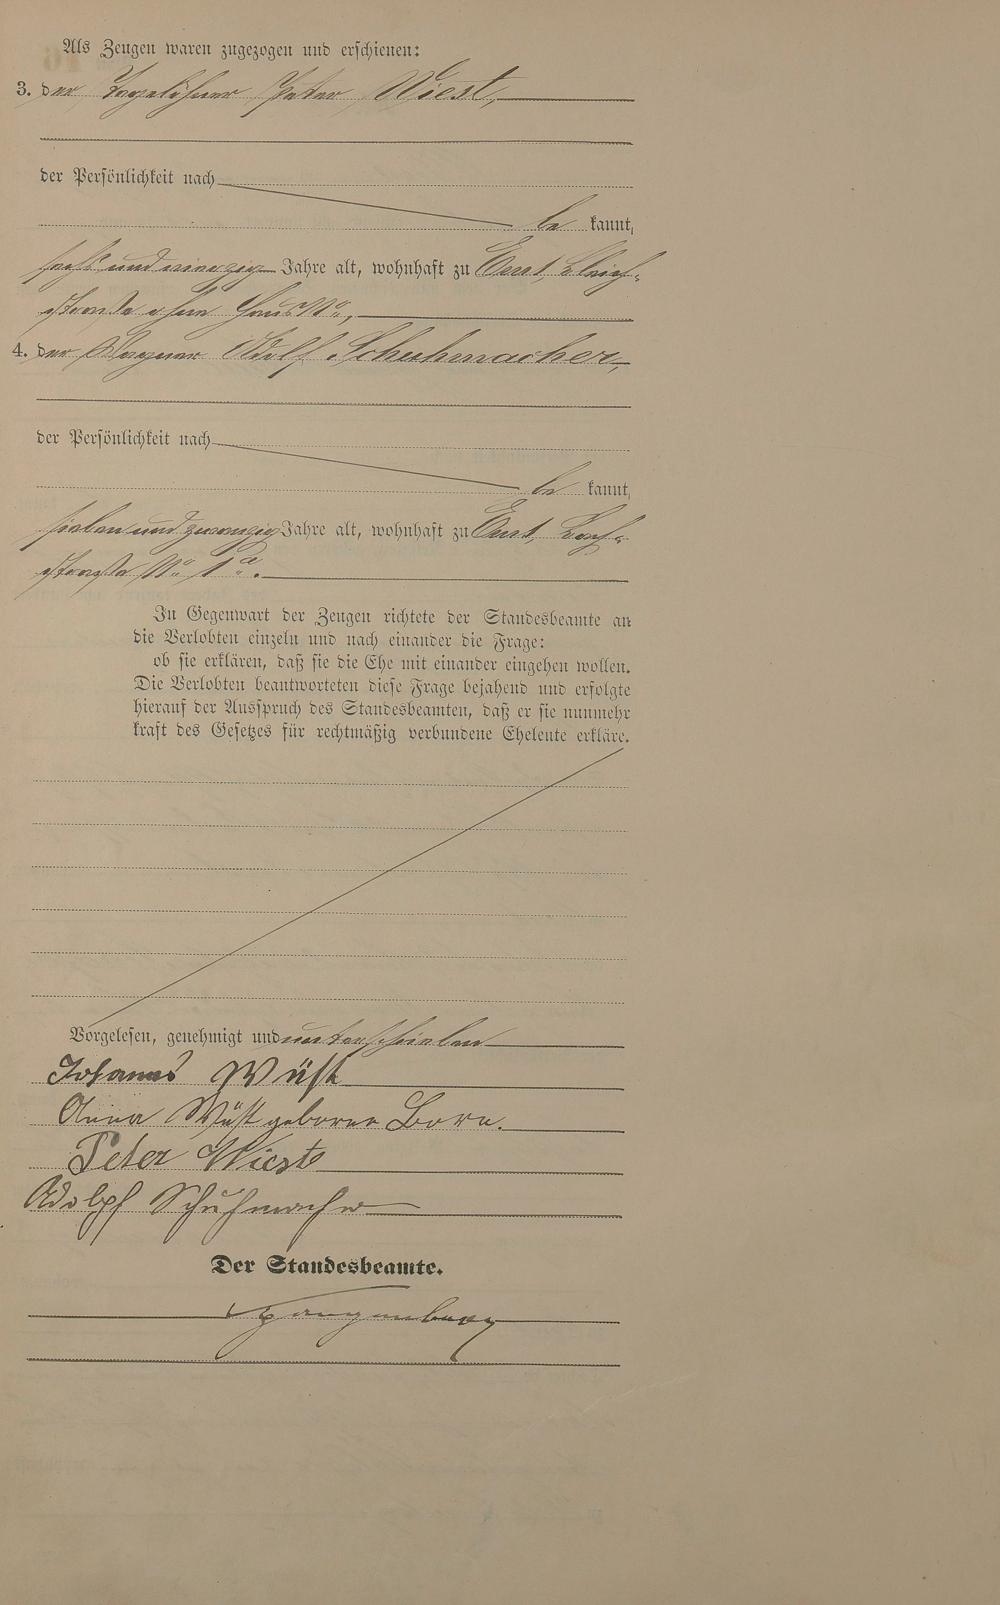 Als Zeugen waren zugezogen und erschienen:
3. der Tagelöhner Peter Wiest,
der Persönlichkeit nach
be kannt,
sechs und Jahre alt, wohnhaft zu Bleich-
straße ohne Haus No,
4. der Wagner Adolf Schuhmacher,
der Persönlichkeit nach
be kannt,
sieben und zwanzig Jahre alt, wohnhaft zu Bach-
straße No 1a.
In Gegenwart der Zeugen richtete der Standesbeamte an
die Verlobten einzeln und nach einander die Frage:
ob sie erklären, daß sie die Ehe mit einander eingehen wollen.
Die Verlobten beantworteten diese Frage bejahend und erfolgte
hierauf der Ausspruch des Standesbeamten, daß er sie nunmehr
kraft des Gesetzes für rechtmäßig verbundene Eheleute erkläre.
Vorgelesen, genehmigt und unterschrieben
Johannes Wüst
Anna Wüst geborene Born.
Peter Wiest
Adolph Schuhmacher
Der Standesbeamte.